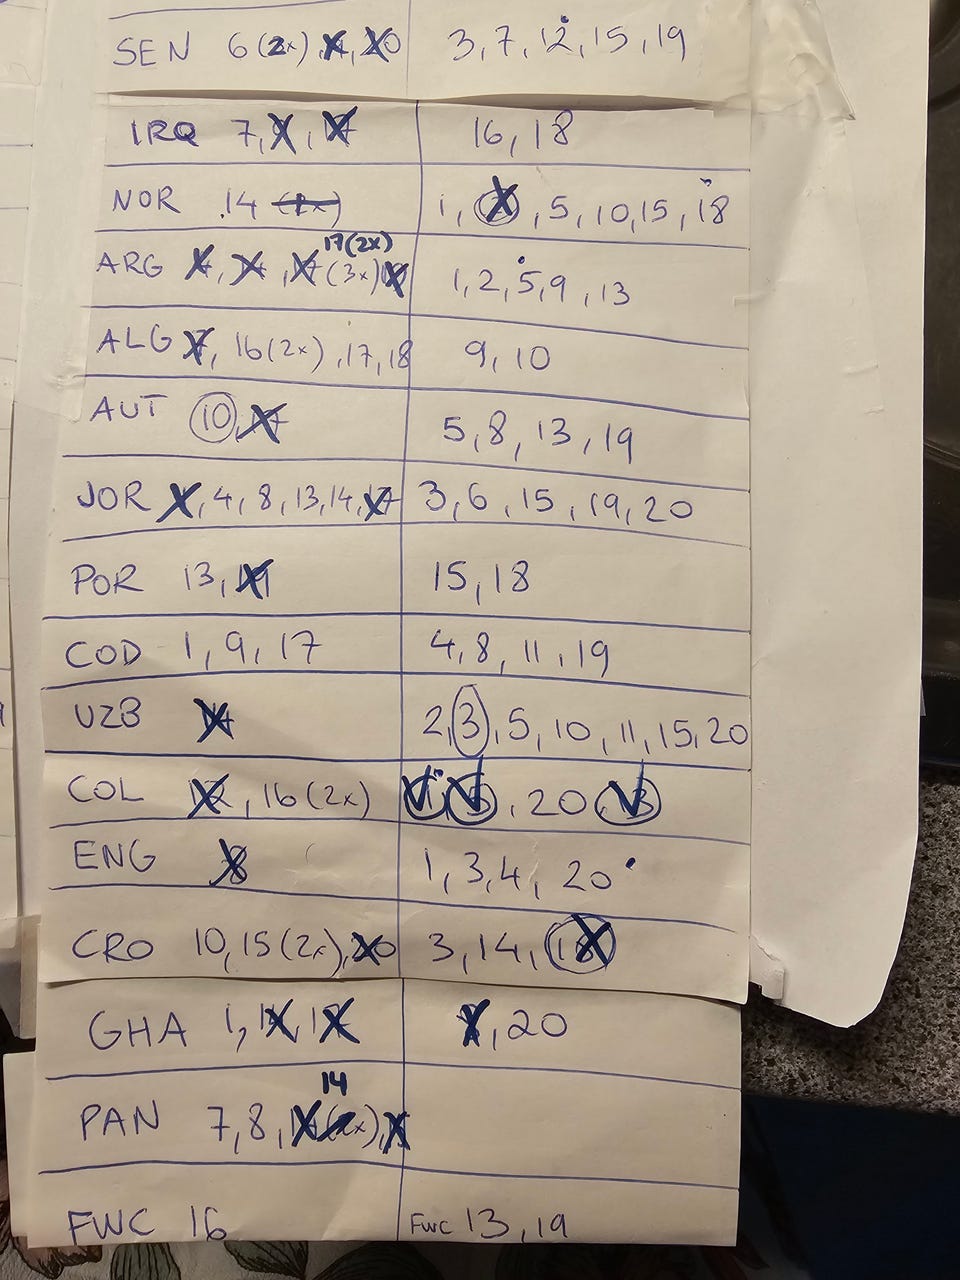 SEN 6(2x) 3, 7, 12, 15, 19
IRQ 7, 16, 18
NOR 14 1, 5, 10, 15, 18
17(2x)
ARG (3x) 1, 2, 5, 9, 13
ALG 16(2x), 17, 18 9, 10
AUT 10 5, 8, 13, 19
JOR 4, 8, 13, 14, 3, 6, 15, 19, 20
POR 13, 15, 18
COD 1, 9, 17 4, 8, 11, 19
UZB 2, 3, 5, 10, 11, 15, 20
COL 16(2x) 20
ENG 8 1, 3, 4, 20
CRO 10, 15(2x), 3, 14,
GHA 1, 20
14
PAN 7, 8,
FWC 16 FWC 13, 19